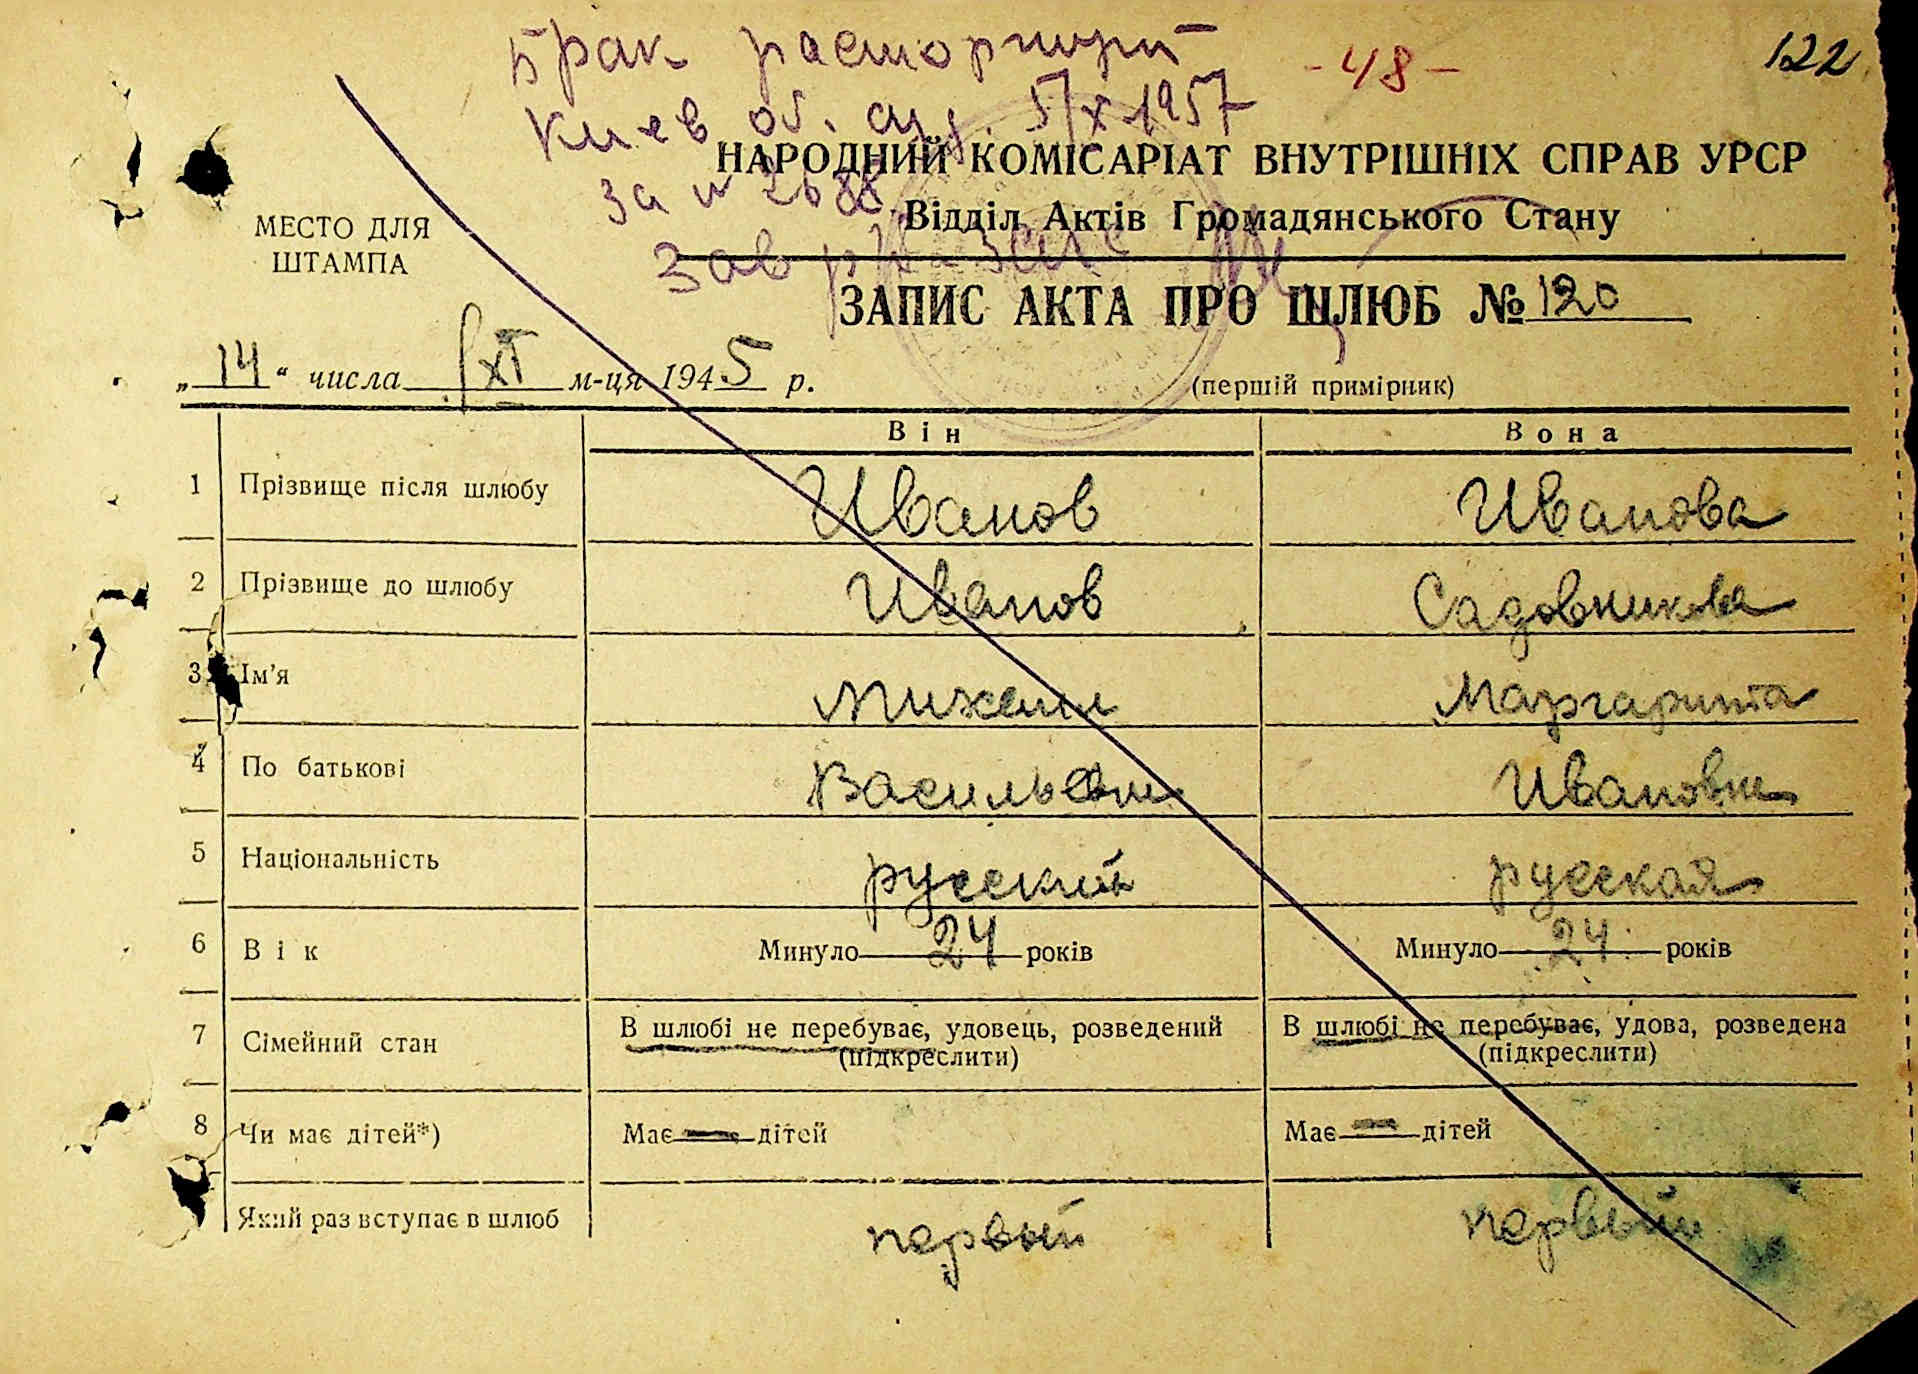 Брак расторгнут
- 48 -
122
Киев об. суд. 5/X 1957
НАРОДНИЙ КОМІСАРІАТ ВНУТРІШНІХ СПРАВ УРСР
за № 2688
Відділ Актів Громадянського Стану
МЕСТО ДЛЯ
ШТАМПА
Зав
ЗАПИС АКТА ПРО ШЛЮБ № 120
„ 14 “ числа XI м-ця 1945 р.
(першій примірник)
Він Вона
1 Прізвище після шлюбу Иванов Иванова
2 Прізвище до шлюбу Иванов Садовникова
3 Ім'я Михаил Маргарита
4 По батькові Васильевич Ивановна
5 Національність русский русская
6 Вік Минуло 24 років Минуло 24 років
7 Сімейний стан В шлюбі не перебуває, удовець, розведений В шлюбі не перебуває, удова, розведена
(підкреслити) (підкреслити)
8 Чи має дітей*) Має — дітей Має — дітей
Який раз вступає в шлюб первый первый